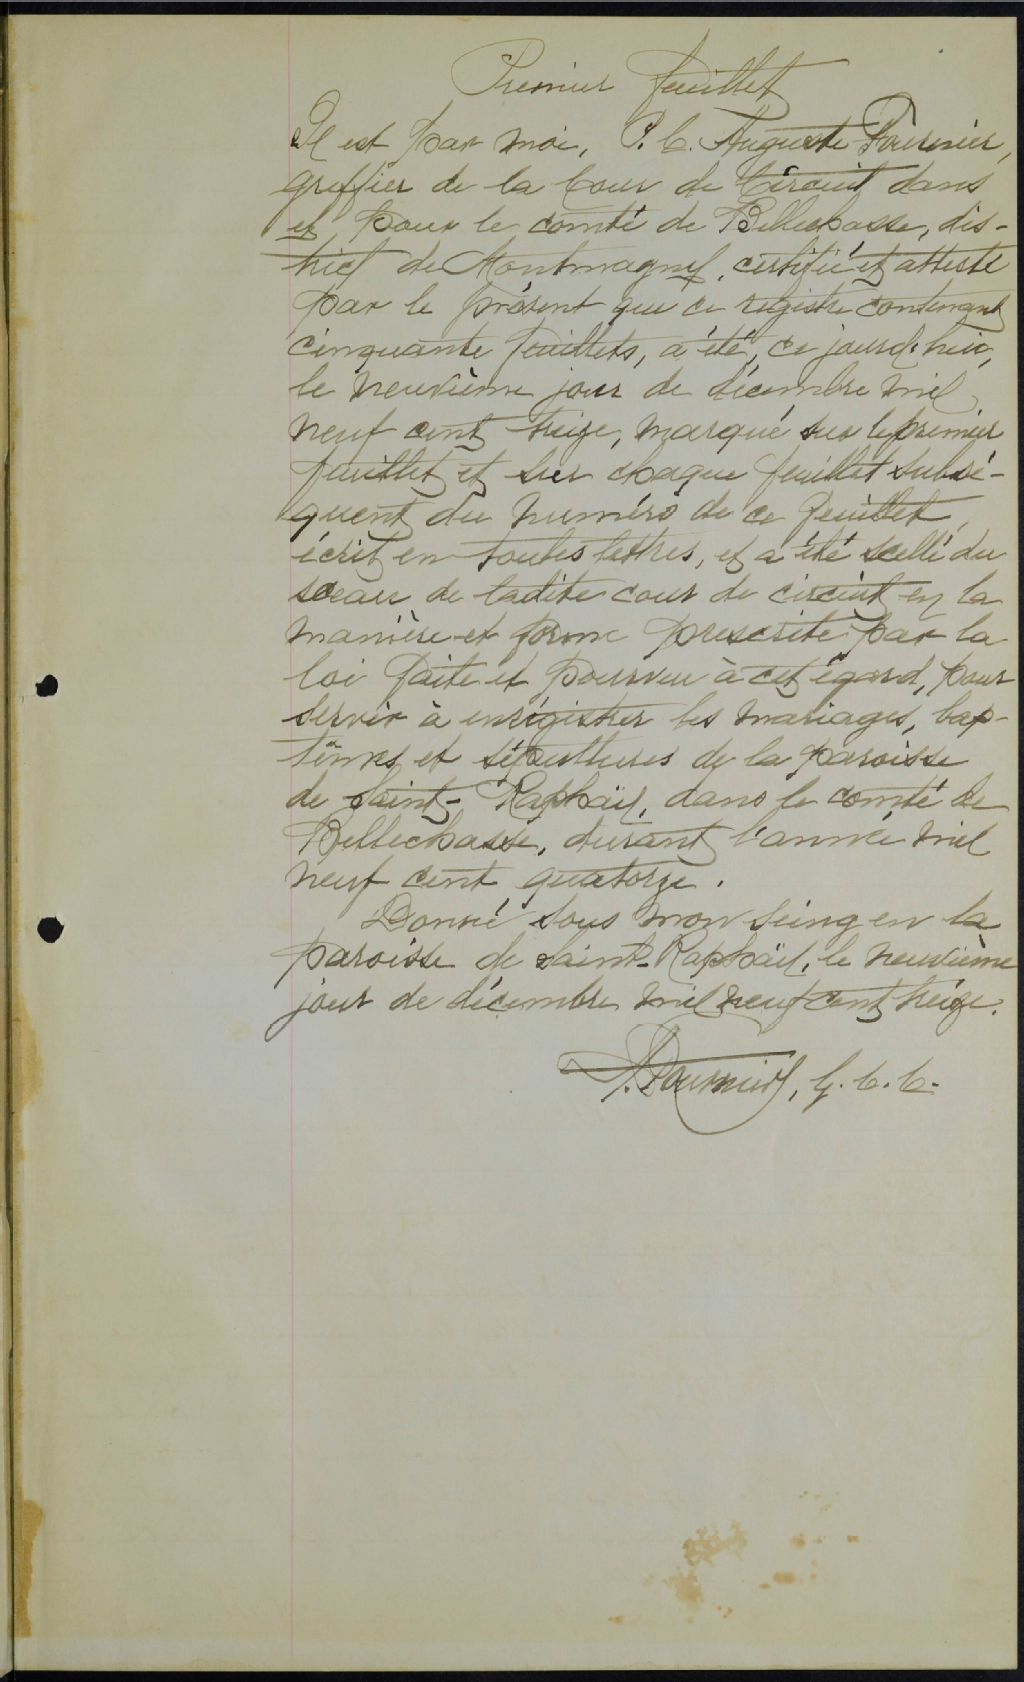 Premier feuillet
Il est par moi, P. C. Auguste Fournier,
greffier de la Cour de Circuit dans
et pour le comté de Bellechasse, dis-
trict de Montmagny, certifié et attesté
par le présent que ce registre contenant
cinquante feuillets, a été, ce jourd'hui,
le neuvième jour de décembre mil
neuf cent treize, marqué sur le premier
feuillet et sur chaque feuillet subsé-
quent du numéro de ce feuillet,
écrit en toutes lettres, et a été scellé du
sceau de ladite cour de circuit en la
manière et forme prescrite par la
loi faite et pourvu à cet égard, pour
servir à enrégistrer les mariages, bap-
têmes et sépultures de la paroisse
de Saint-Raphaël, dans le comté de
Bellechasse, durant l'année mil
neuf cent quatorze.
Donné sous mon seing en la
paroisse de Saint-Raphaël, le neuvième
jour de décembre mil neuf cent treize.
A. Fournier, G. C. C.